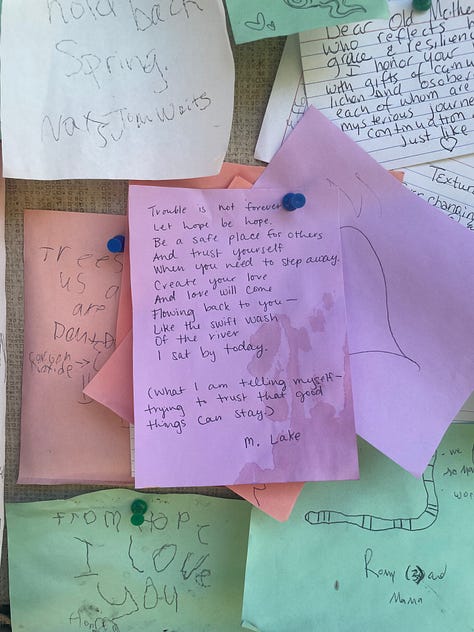 hold back
Spring.
Nat & Tom Waits
Dear Old Mother
who reflects
grace & resilienc
I honor your
with gifts of
lichen and osobe
each of whom are
mysterious journe
continuation
just like
Textu
changing
Trouble is not forever.
Let hope be hope.
Be a safe place for others
And trust yourself
When you need to step away.
Create your love
And love will come
Flowing back to you—
Like the swift wash
Of the river
I sat by today.
(What I am telling myself—
trying to trust that good
things can stay.)
M. Lake
Trees
us a
are
I love
you
we
Romy (3) and
Mama